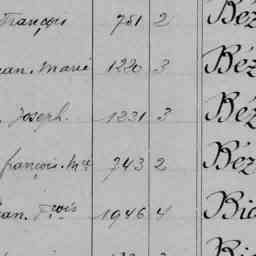 François 751 2 Béz
ean. Marie 1220 3 Béz
. Joseph. 1231 3 Béz
françois. Mie 743 2 Béz
ean. Frois 1946 4 Bid